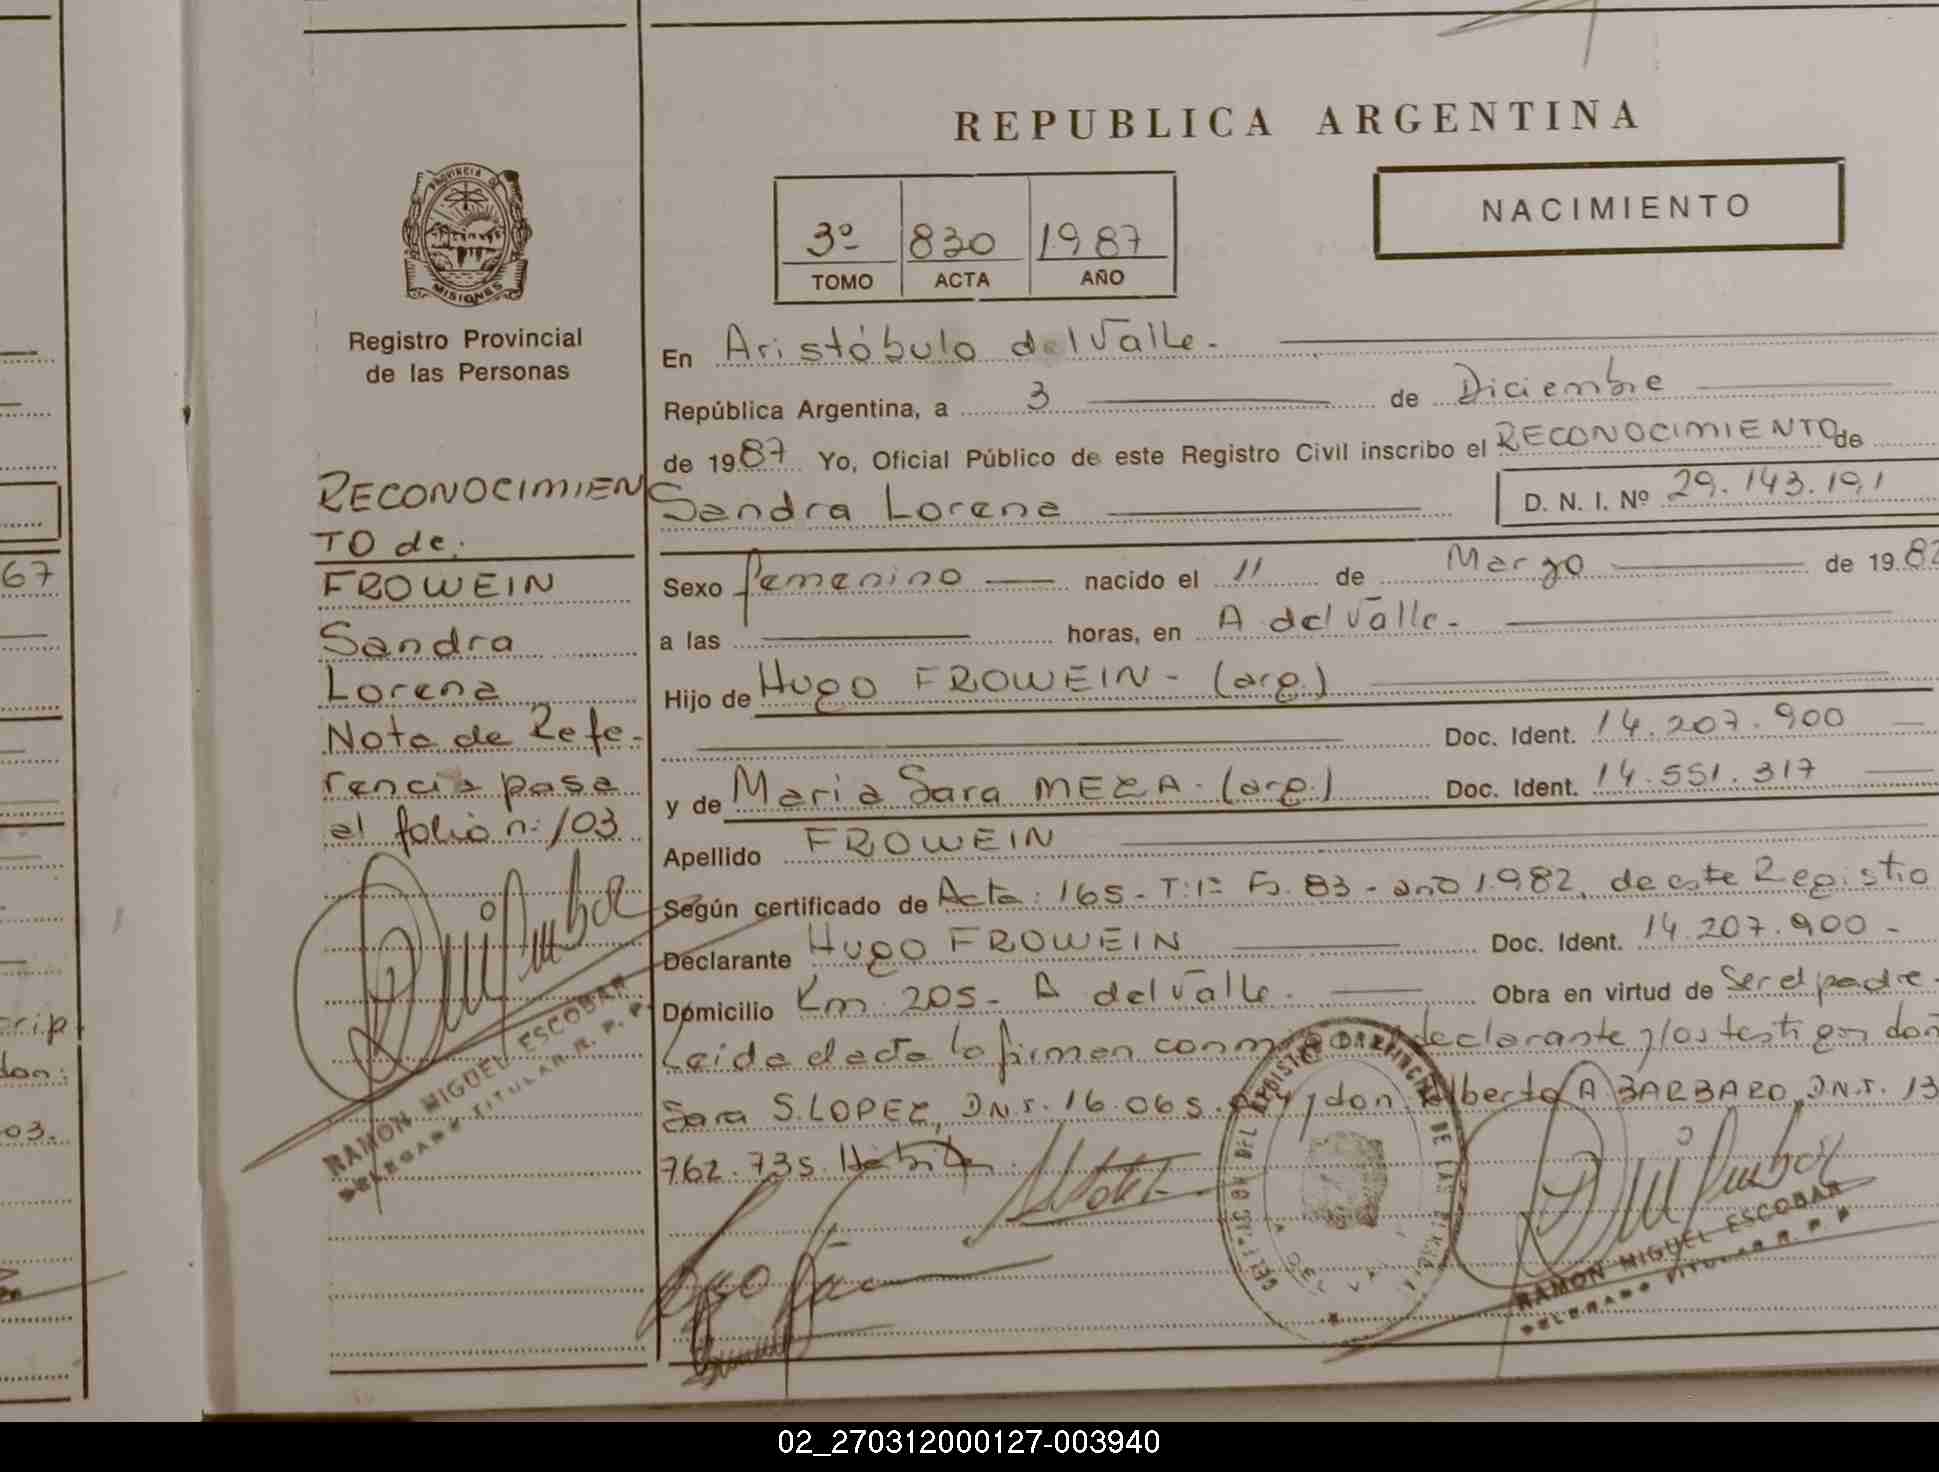 REPUBLICA ARGENTINA
NACIMIENTO
PROVINCIA DE
MISIONES
Registro Provincial
de las Personas
3º 830 1987
TOMO ACTA AÑO
En Aristóbulo del Valle.
República Argentina, a 3 de Diciembre
de 1987 Yo, Oficial Público de este Registro Civil inscribo el RECONOCIMIENTO de
Sandra Lorena D. N. I. Nº 29.143.191
Sexo femenino nacido el 11 de Marzo de 1982
a las horas, en A del Valle.
Hijo de Hugo FROWEIN - (arg.)
Doc. Ident. 14.207.900
y de Maria Sara MEZA. (arg.) Doc. Ident. 14.551.317
Apellido FROWEIN
Según certificado de Acta: 165 - T: 1º Fo. 83 - año 1982, de este Registro
Declarante Hugo FROWEIN Doc. Ident. 14.207.900 -
Domicilio Km 205 - A del Valle. Obra en virtud de Ser el padre.
Leida el acta la firman conmigo declarante y los testigos don
Sara S. LOPEZ, D.N.I. 16.065. y don Alberto A BARBARO, D.N.I. 13
762.735.
RECONOCIMIEN
TO de:
FROWEIN
Sandra
Lorena
Nota de Refe-
rencia pasa
al folio n: 103
RAMON MIGUEL ESCOBAR
DELEGADO TITULAR R. P. P.
RAMON MIGUEL ESCOBAR
DELEGADO TITULAR R. P. P.
67
crip
don:
03.
02_270312000127-003940